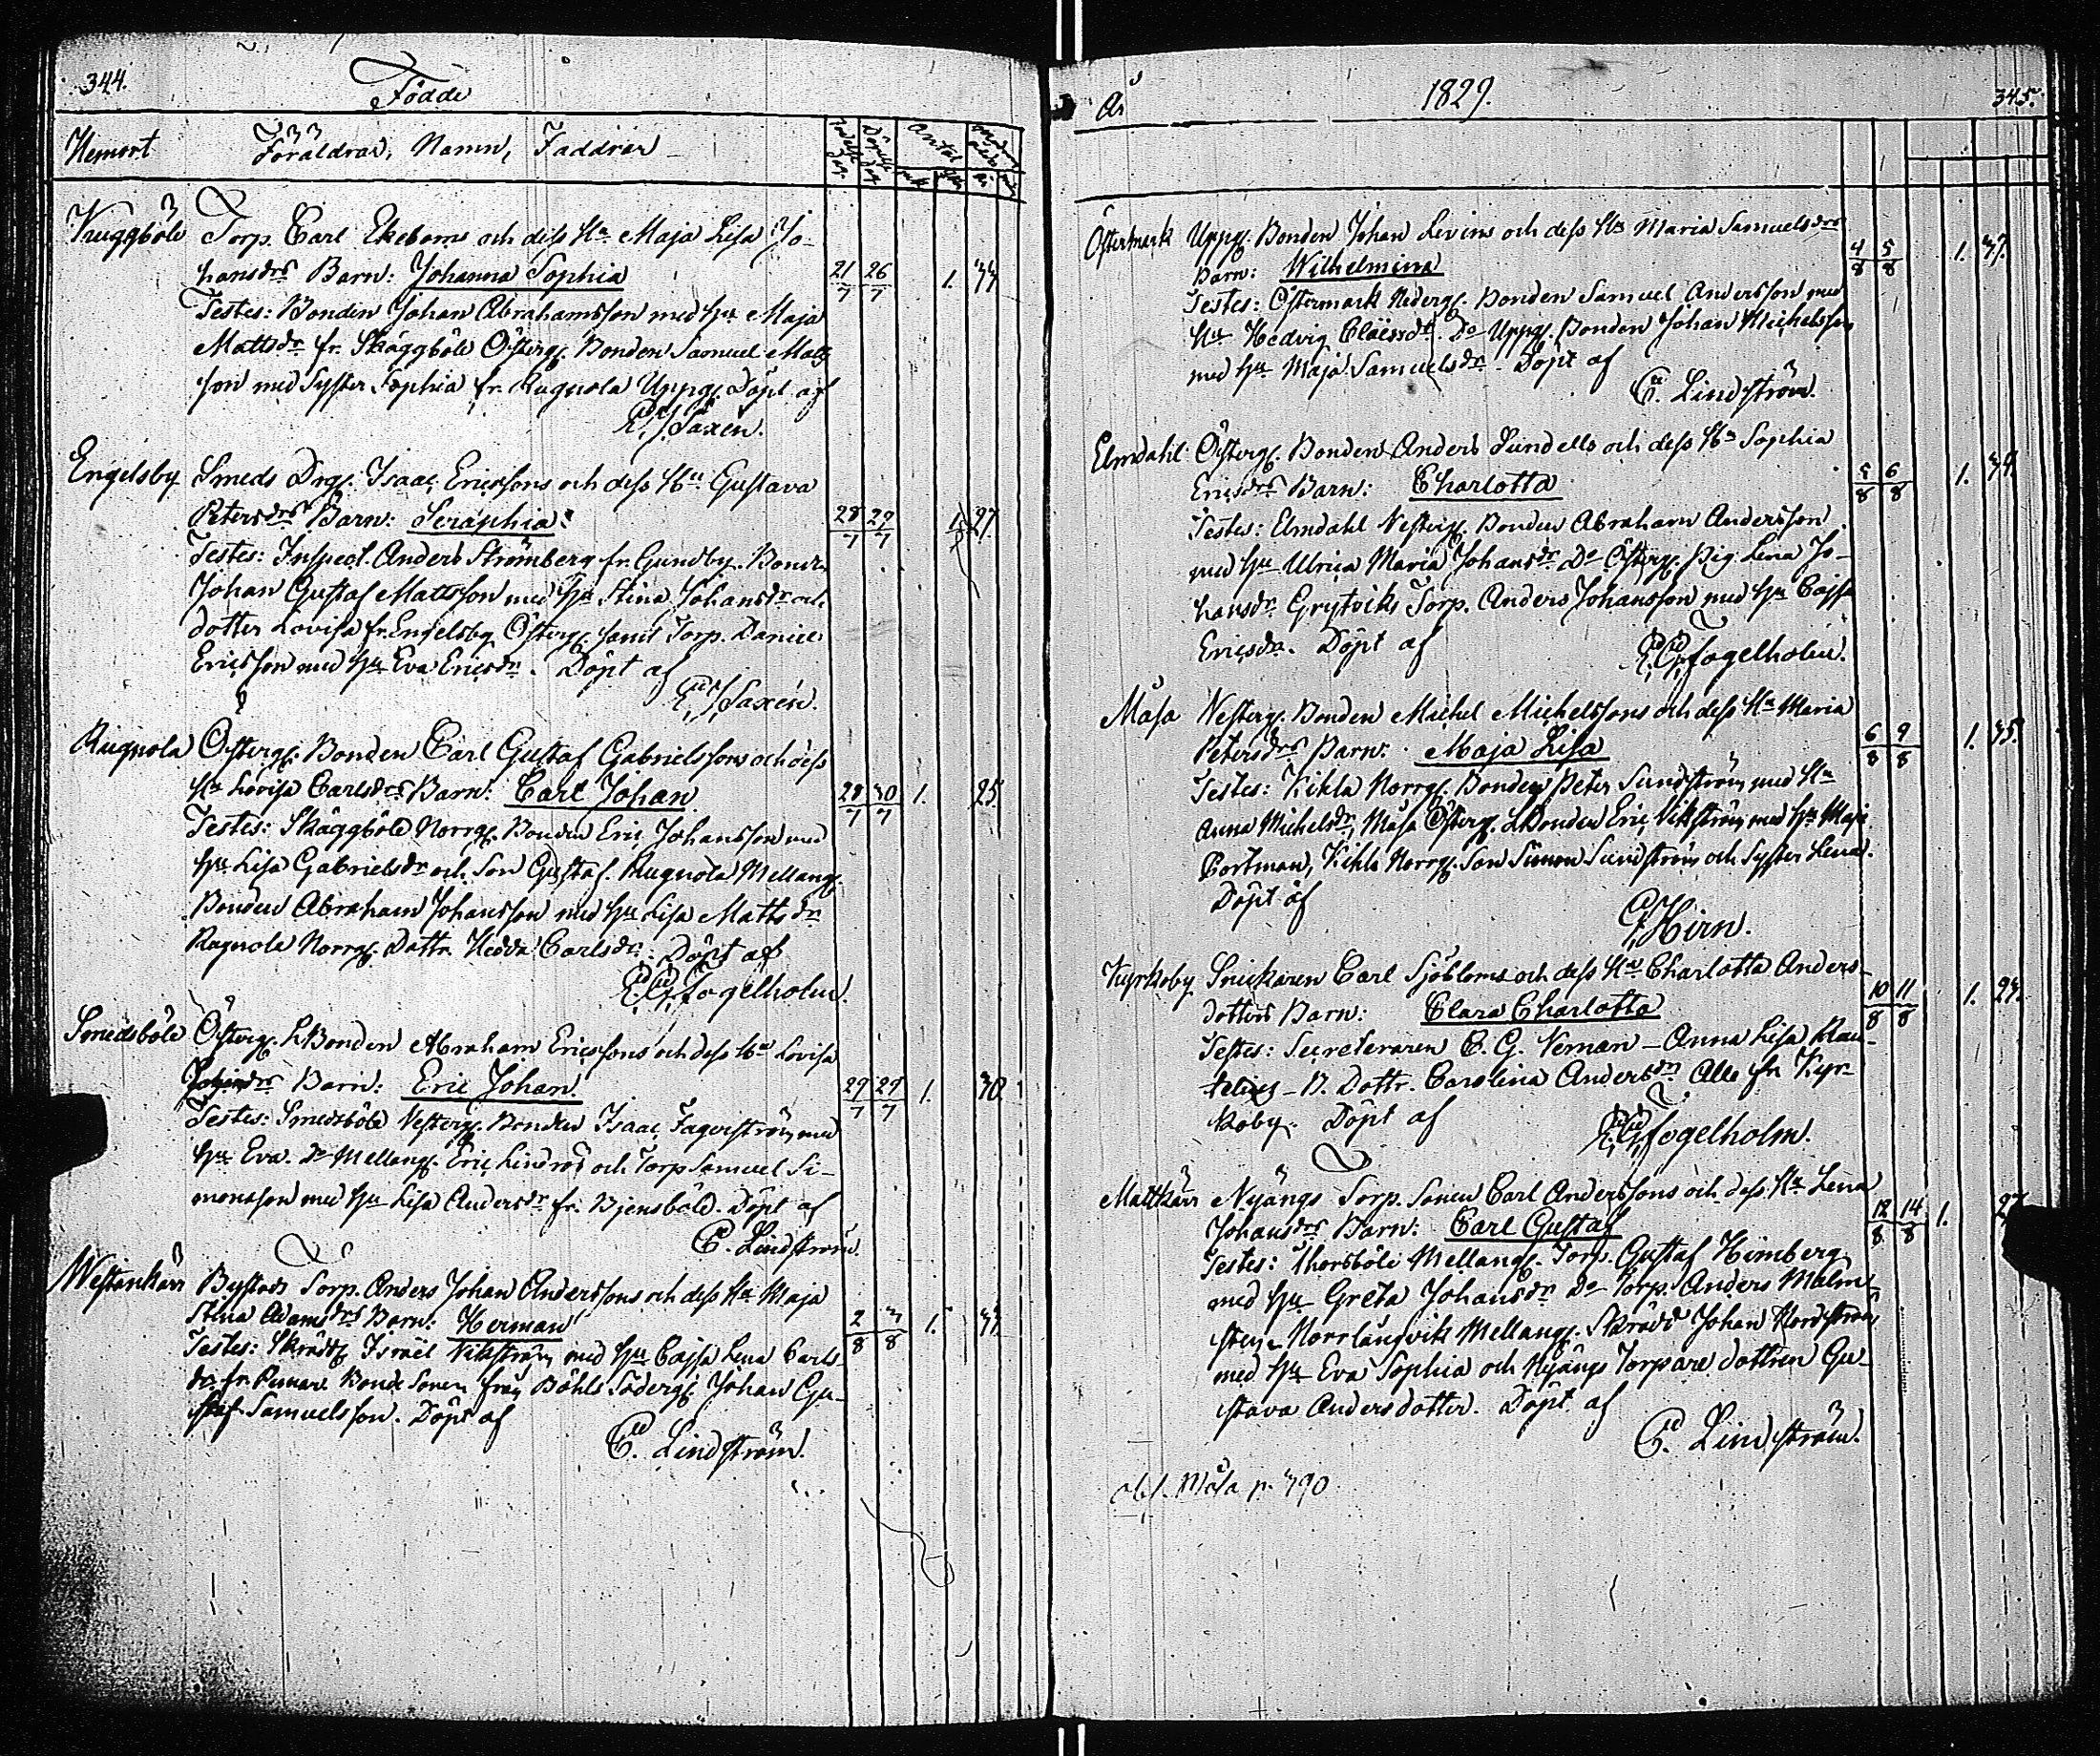 344.
Födde
Hemort Föräldrar, Namn, Faddrar
Födelse Dag. Döpelse Dag Antal
Kruggböle Torp. Carl Ekeboms och dess Hu Maja Lisa Jo-
hansdrs Barn: Johanna Sophia 21/7 26/7 1. 33.
Testes: Bonden Johan Abrahamsson med Hu Maja
Mattsdr fr. Skäggböle Österg. Bonden Samuel Matts
son med Syster Sophia fr. Rugnola Uppg. Döpt af
Saxén.
Engelsby Smeds Drg. Isaac Ericssons och dess Hu Gustava
Petersdrs Barn: Seraphia. 28/7 29/7 1. 27.
Testes: Inspect. Anders Strömberg fr. Gundby. Bond.
Johan Gustaf Mattsson med Hu Stina Johansdr och
dotter Lovisa fr. Engelsby Österg. samt Torp. Daniel
Ericsson med Hu Eva Ericsdr. Döpt af
Saxén.
Rugnola Österg. Bonden Carl Gustaf Gabrielssons och dess
Hu Lovisa Carlsdrs Barn: Carl Johan 28/7 30/7 1. 25.
Testes: Skäggböle Norrg. Bonden Eric Johansson med
Hu Lisa Gabrielsdr och Son Gustaf. Rugnola Mellang.
Bonden Abraham Johansson med Hu Lisa Mattsdr
Rugnola Norrg. Dottr. Hedda Carlsdr. Döpt af
Fogelholm.
Smedsböle Österg. LBonden Abraham Ericssons och dess Hu Lovisa
Barn: Eric Johan. 29/7 29/7 1. 30.
Testes: Smedsböle Vesterg. Bonden Isaac Fagerström med
Hu Eva. Do Mellang. Eric Lindros och Torp Samuel Si-
monsson med Hu Lisa Andersdr fr. Bjensböle. Döpt af
C. Lindström.
Westankärr Bystads Torp. Anders Johan Anderssons och dess Hu Maja
Stina Adamsdrs Barn: Herman 2/8 3/8 1. 33.
Testes: Skrädd. Israël Vikström med Hu Cajsa Lena Carls-
dr fr. Bonde Sonen från Böhle Söderg. Johan Gu-
staf Samuelsson. Döpt af
C. Lindström.
År 1829. 345.
Östermark Uppg. Bonden Johan Levins och dess Hu Maria Samuelsdrs
Barn: Wilhelmina 4/8 5/8 1. 37.
Testes: Östermark Nederg. Bonden Samuel Andersson med
Hu Hedvig Claësdr. Do Uppg. Bonden Johan Michelsson
med Hu Maja Samuelsdr. Döpt af
C. Lindström.
Elmdahl Österg. Bonden Anders Lundells och dess Hu Sophia
Ericsdrs Barn: Charlotta 5/8 6/8 1. 34.
Testes: Elmdahl Vesterg. Bonden Abraham Andersson
med Hu Ulrica Maria Johansdr Do Österg. Pig. Lena Jo-
hansdr Grytviks Torp. Anders Johansson med Hu Cajsa
Ericsdr. Döpt af
Fogelholm.
Måsa Vesterg. Bonden Michel Michelssons och dess Hu Maria
Petersdrs Barn: Maja Lisa 6/8 9/8 1. 35.
Testes: Kihla Norrg. Bonden Peter Sundström med Hu
Anna Michelsdr, Måsa Österg. LBonden Eric Vikström med Hu Maja
Portman, Kihla Norrg. Son Simon Sundström och Syster Lena.
Döpt af
Hirn.
Kyrkoby Snickaren Carl Sjöbloms och dess Hu Charlotta Anders-
dotters Barn: Clara Charlotta 10/8 11/8 1. 23.
Testes: Secreteraren C. G. Neman - Anna Lisa
B. Dottr. Carolina Andersdr Alla fr. Kyr-
koby. Döpt af
Fogelholm.
Mattkärr Nyängs Torp. Sonen Carl Anderssons och dess Hu Lena
Johansdrs Barn: Carl Gustaf 12/8 14/8 1. 27
Testes: Thorsböle Mellang. Torp. Gustaf Himberg
med Hu Greta Johansdr Do Torp. Anders Malm-
sten Norrlångviks Mellang. Skrädd Johan Nordström
med Hu Eva Sophia och Nyängs Torpare dottren Gu-
stava Andersdotter. Döpt af
C. Lindström.
obs. Måsa p. 390